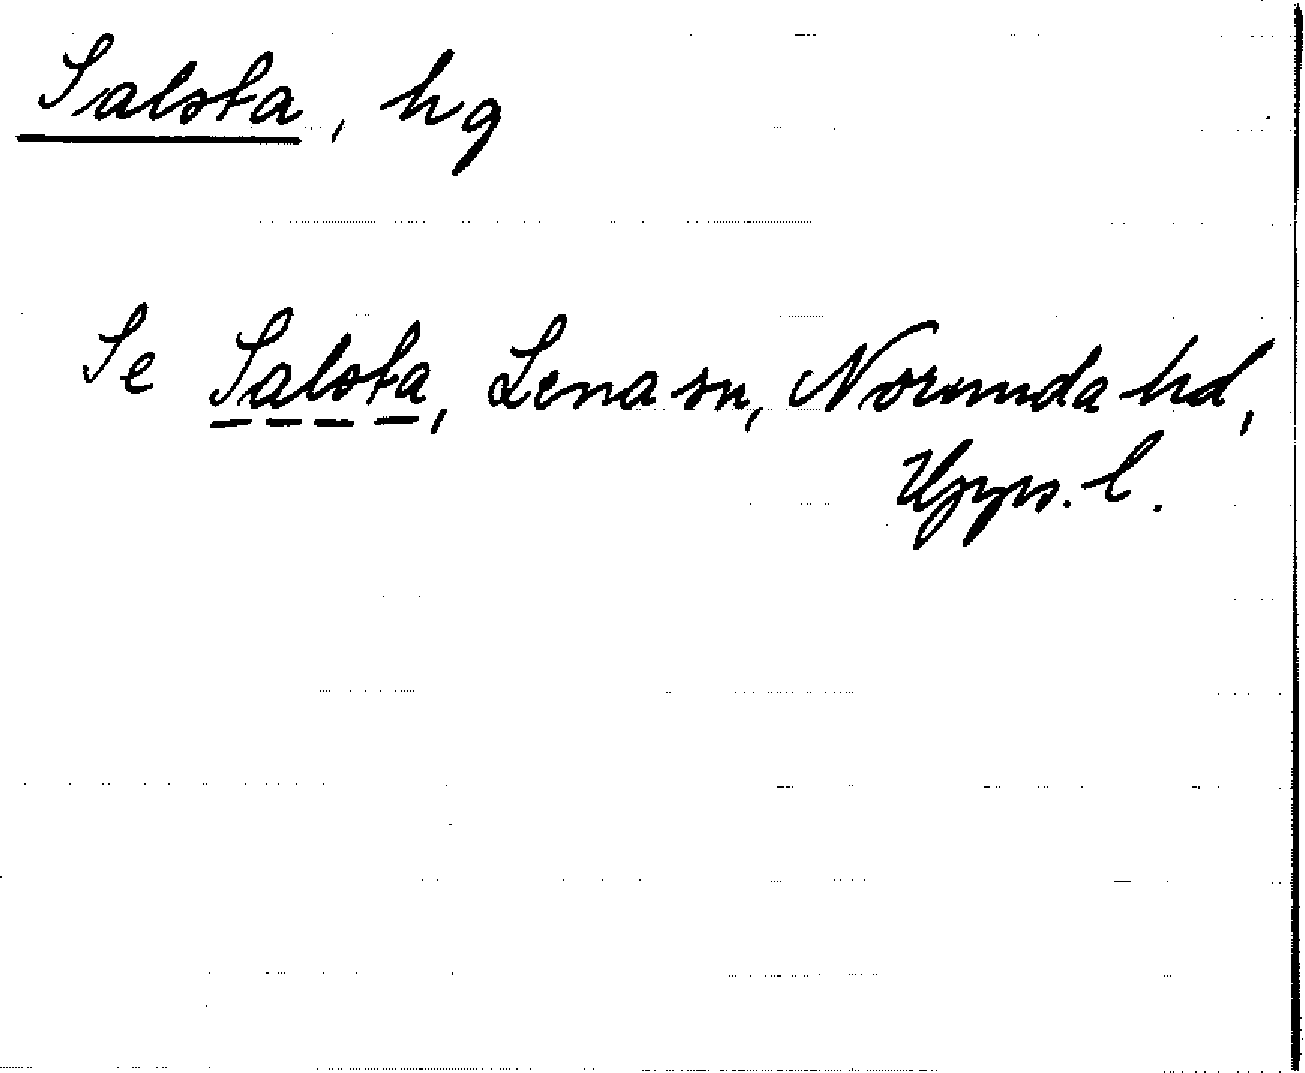 Salsta, hg
Se Salsta, Lena sn, Norunda hd,
Upps. l.